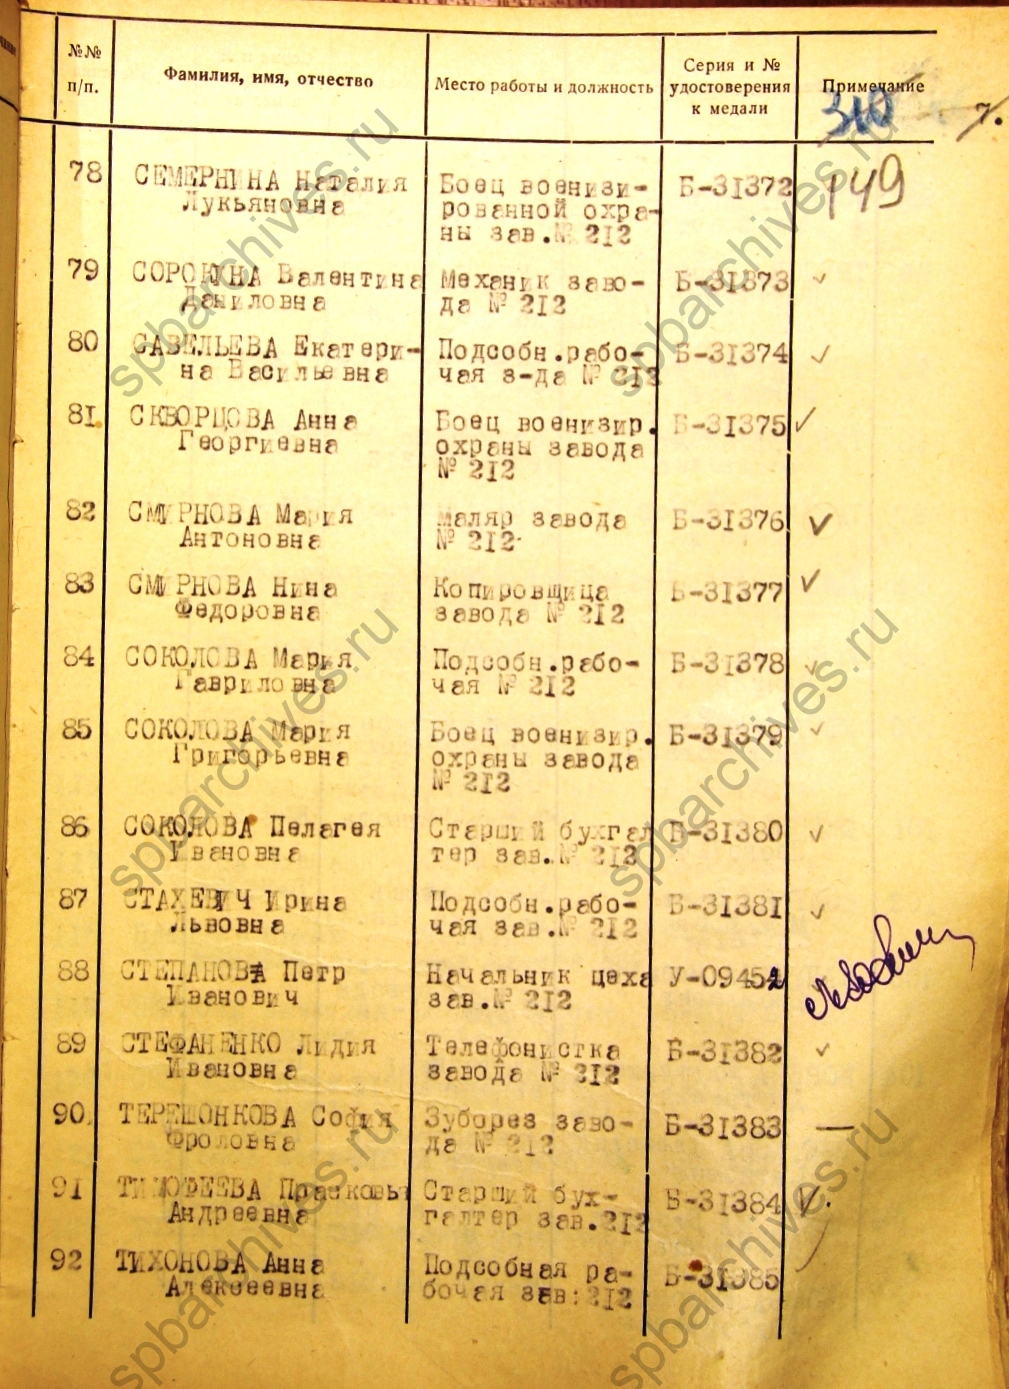 №№ п/п.
Фамилия, имя, отчество
Место работы и должность
Серия и № удостоверения к медали
Примечание
310
7.
149
78 СЕМЕРНИНА Наталия Боец военизи- Б-31372
Лукьяновна рованной охра-
ны зав.№ 212
79 СОРОКИНА Валентина Механик заво- Б-31373
Даниловна да № 212
80 САВЕЛЬЕВА Екатери- Подсобн.рабо- Б-31374
на Васильевна чая з-да № 212
81. СКВОРЦОВА Анна Боец военизир. Б-31375
Георгиевна охраны завода
№ 212
82 СМИРНОВА Мария маляр завода Б-31376
Антоновна № 212
83 СМИРНОВА Нина Копировщица Б-31377
Федоровна завода № 212
84 СОКОЛОВА Мария Подсобн.рабо- Б-31378
Гавриловна чая № 212
85 СОКОЛОВА Мария Боец военизир. Б-31379
Григорьевна охраны завода
№ 212
86 СОКОЛОВА Пелагея Старший бухгал Б-31380
Ивановна тер зав.№ 212
87 СТАХЕВИЧ Ирина Подсобн.рабо- Б-31381
Львовна чая зав.№ 212
88 СТЕПАНОВ Петр Начальник цеха У-09452
Иванович зав.№ 212
89 СТЕФАНЕНКО Лидия Телефонистка Б-31382
Ивановна завода № 212
90. ТЕРЕШОНКОВА София Зуборез заво- Б-31383
Фроловна да № 212
91 ТИМОФЕЕВА Прасковья Старший бух- Б-31384
Андреевна галтер зав.212
92 ТИХОНОВА Анна Подсобная ра- Б-31385
Алексеевна бочая зав:212
spbarchives.ru
spbarchives.ru
spbarchives.ru
spbarchives.ru
spbarchives.ru
spbarchives.ru